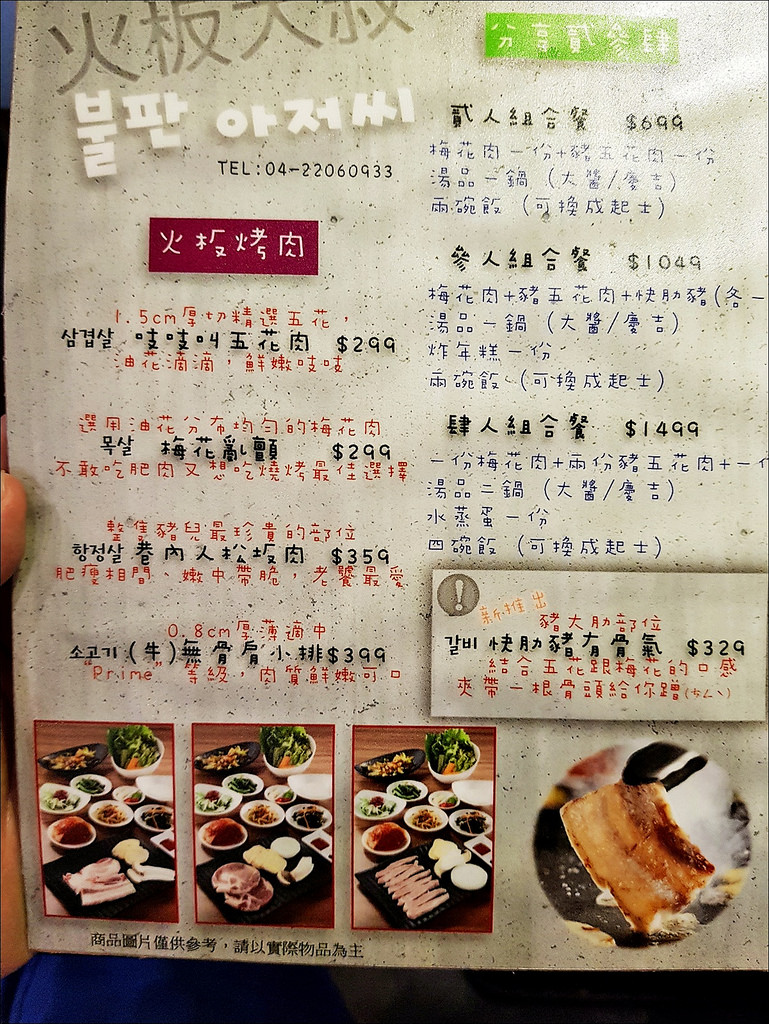 火板大叔
불판 아저씨
TEL:04-22060933
火板烤肉
1.5cm厚切精選五花，
삼겹살 吱吱叫五花肉 $299
油花滴滴，鮮嫩吱吱
選用油花分布均勻的梅花肉
목살 梅花亂顫 $299
不敢吃肥肉又想吃燒烤最佳選擇
整隻豬兒最珍貴的部位
항정살 巷內人松坂肉 $359
肥瘦相間、嫩中帶脆，老饕最愛
0.8cm厚薄適中
소고기 (牛)無骨肩小排$399
"Prime"等級，肉質鮮嫩可口
分享貳參肆
貳人組合餐 $699
梅花肉一份+豬五花肉一份
湯品一鍋 (大醬/慶吉)
兩碗飯 (可換成起士)
參人組合餐 $1049
梅花肉+豬五花肉+快肋豬(各一
湯品一鍋 (大醬/慶吉)
炸年糕一份
兩碗飯 (可換成起士)
肆人組合餐 $1499
一份梅花肉+兩份豬五花肉+一
湯品二鍋 (大醬/慶吉)
水蒸蛋一份
四碗飯 (可換成起士)
新推出
豬大肋部位
갈비 快肋豬有骨氣 $329
結合五花跟梅花的口感
夾帶一根骨頭給你蹭(ㄘㄥˋ)
商品圖片僅供參考，請以實際物品為主